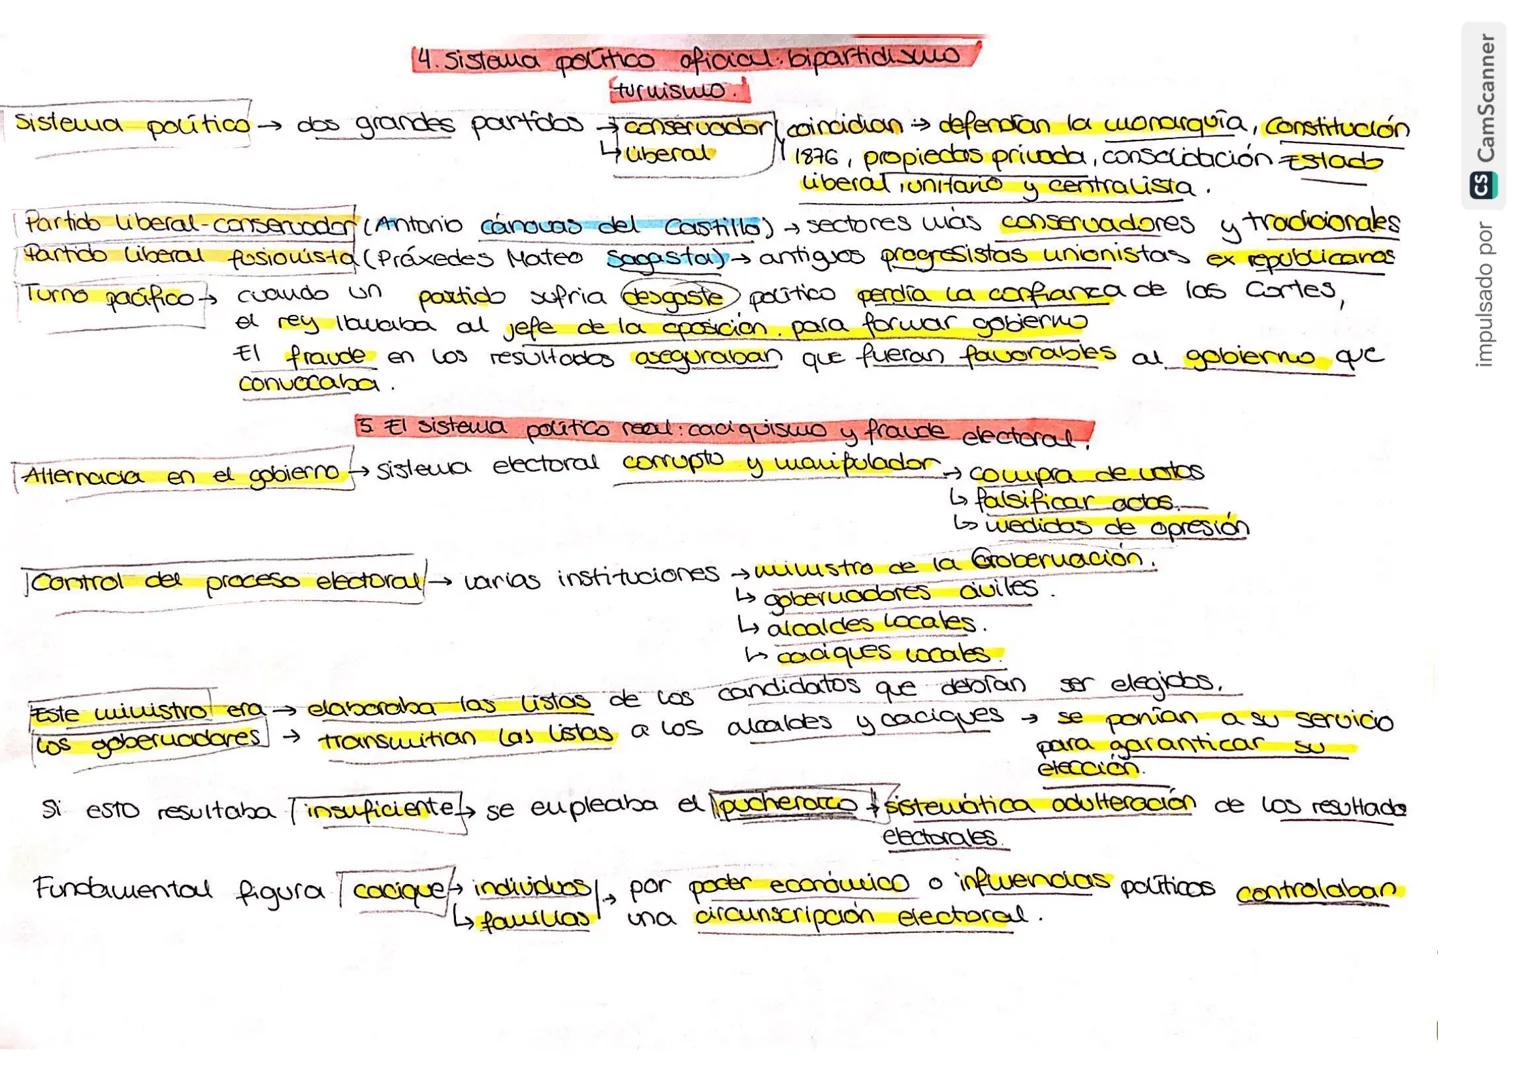 4. Sistema político oficial: bipartidismo
turnismo.
Sistema político → dos grandes partidos → conservador coincidian → defendían la monarquía, constitución
↳ liberal 1876, propiedas privada, consolidación Estado
liberal, unitario y centralista.
Partido liberal-conservador (Antonio cánovas del Castillo) → sectores más conservadores y tradicionales
Partido liberal fusionista (Práxedes Mateo Sagasta) → antiguos progresistas unionistas ex republicanos
Turno pacífico → cuando un partido sufria desgaste político perdía la confianza de las Cortes,
el rey llamaba al jefe de la oposición para formar gobierno
El fraude en los resultados aseguraban que fueran favorables al gobierno que
convocaba.
5. El sistema político real: caciquismo y fraude electoral.
Alternacia en el gobierno → sistema electoral corrupto y manipulador → compra de votos
↳ falsificar actas.
↳ medidas de opresión
Control del proceso electoral → varias instituciones → ministro de la Gobernación.
↳ gobernadores civiles.
↳ alcaldes locales.
↳ caciques locales.
Este ministro era → elaboraba las listas de los candidatos que debían ser elegidos.
Los gobernadores → transmitian las listas a los alcaldes y caciques → se ponían a su servicio
para garanticar su
elección.
Si esto resultaba insuficiente → se empleaba el pucherazo → sistemática adulteración de los resultado
electorales.
Fundamental figura cacique → individuos → por poder económico o influencias políticas controlaban
↳ familias una circunscripción electoral.
impulsado por CS CamScanner